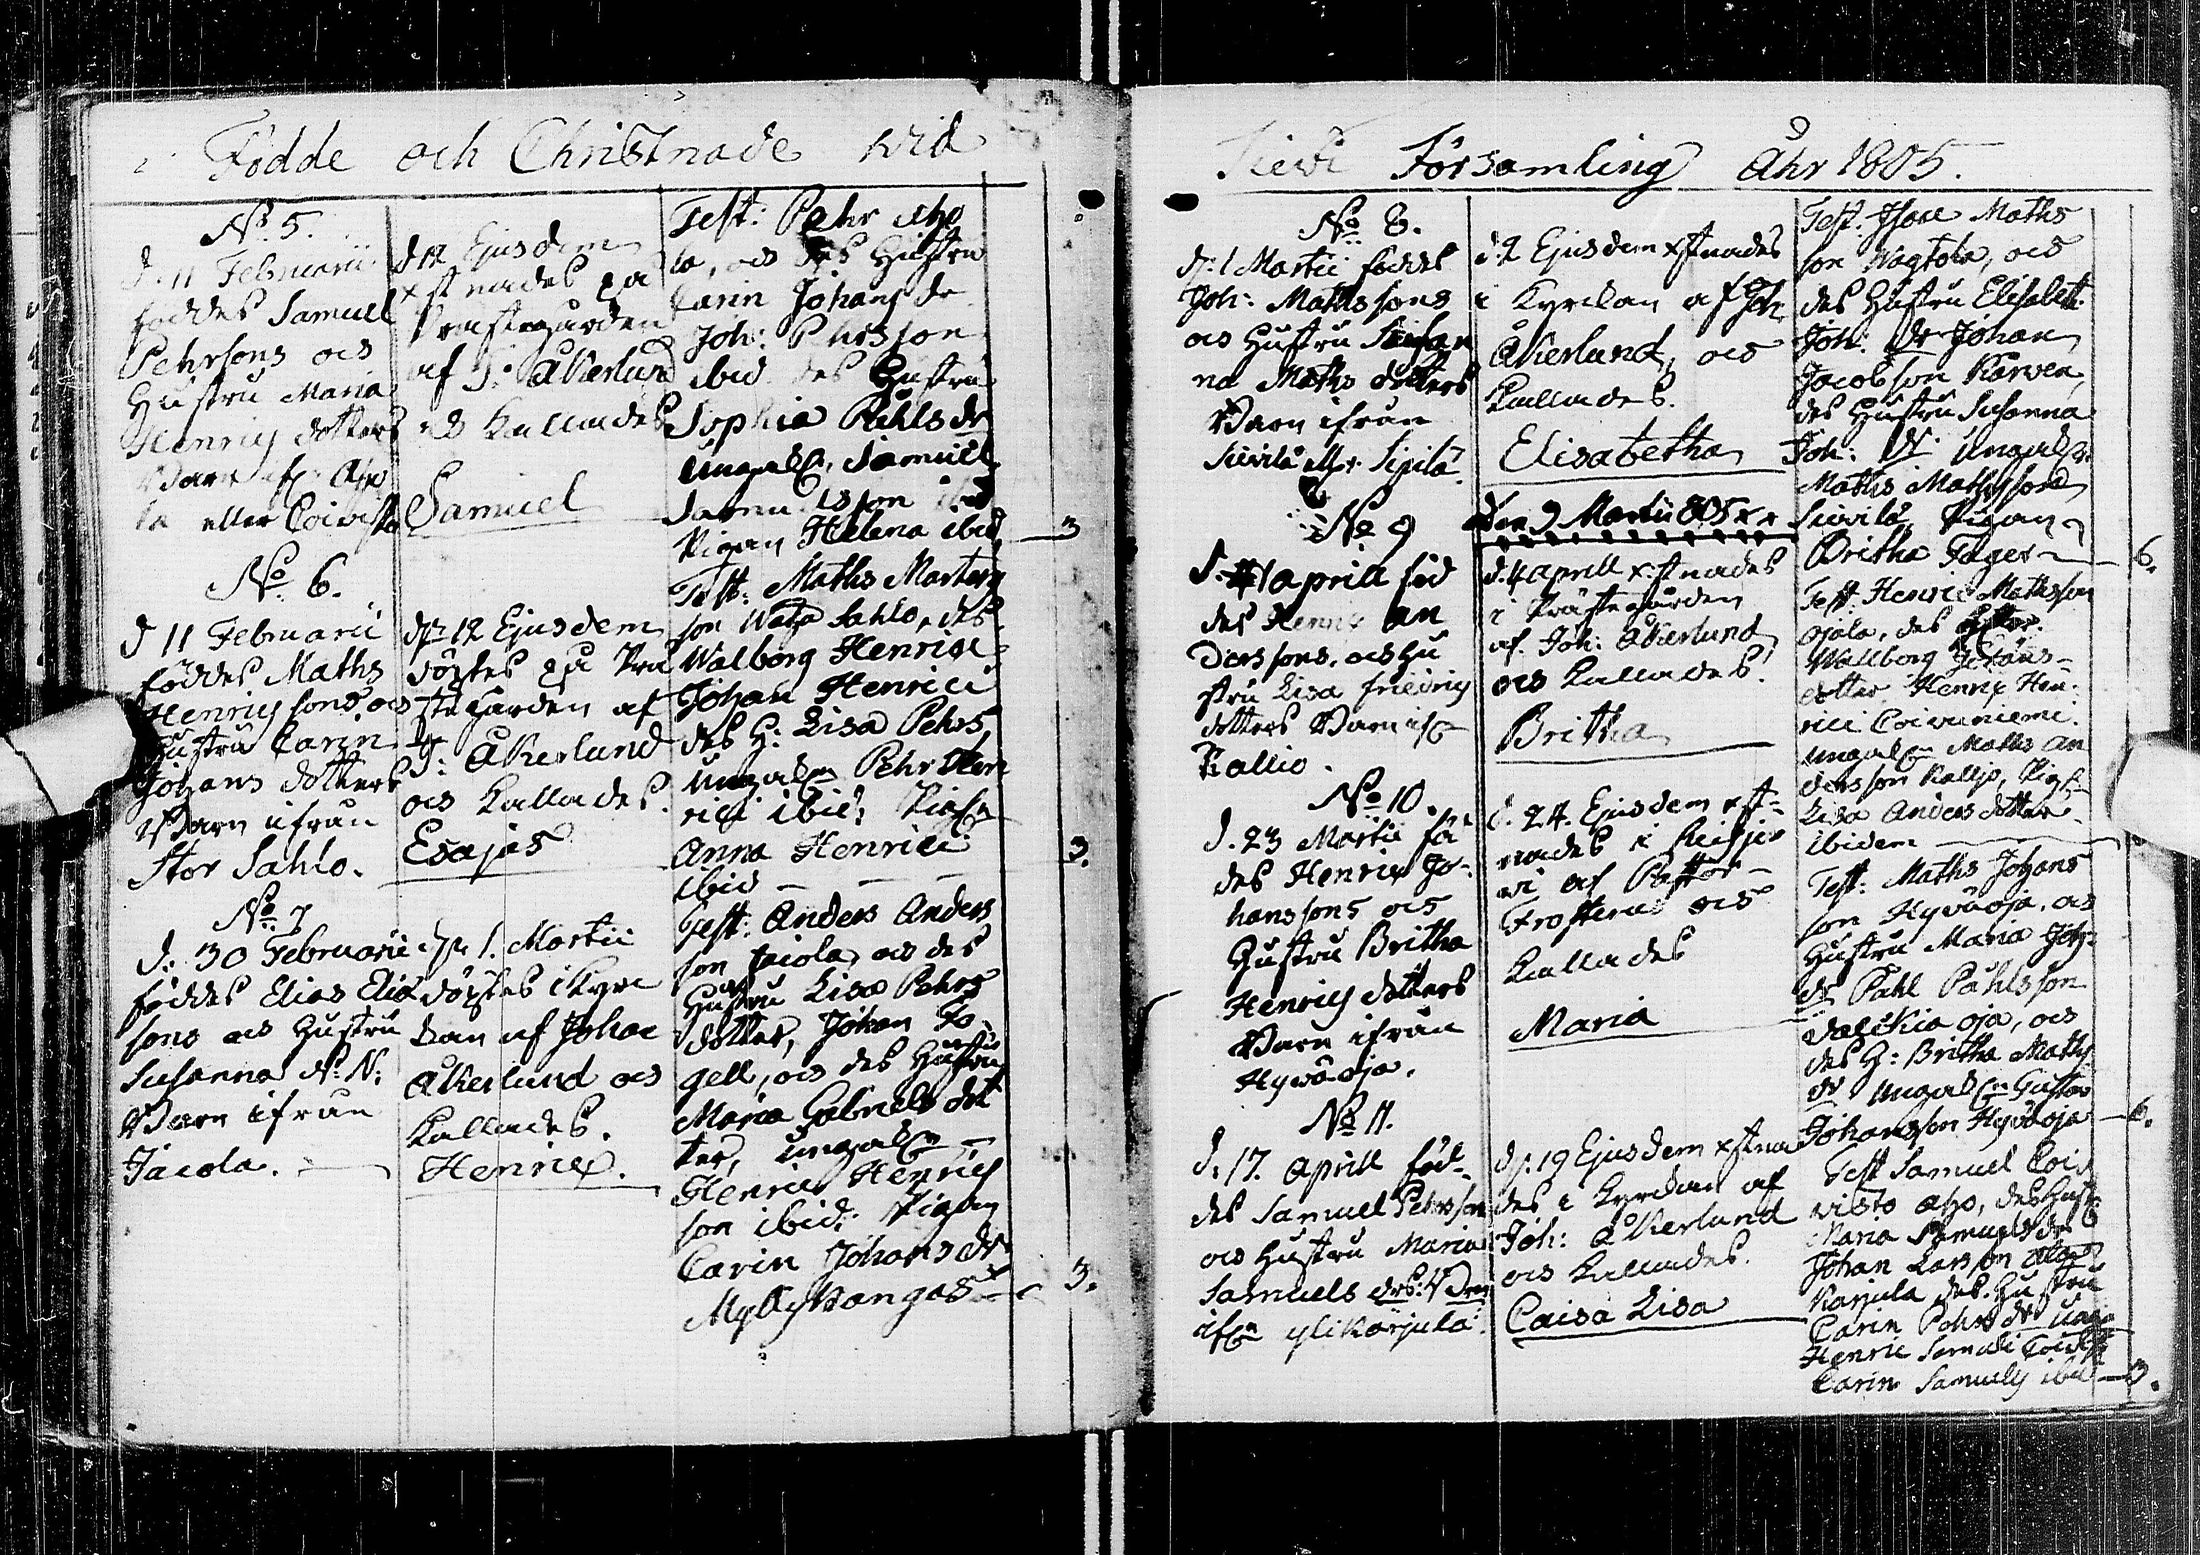 Födde och Christnade wid
N:o 5.
d. 11 Februarii
föddes Samuel
Pehrsons och
Hustru Maria
Henrics dotters
Barn ifr. Aho
la eller Coivisto
d 12 Ejusdem
xstnades på
Prästegården
af J: Åkerlund
och kallades
Samuel
Test: Pehr Aho
la, och des Hustru
Carin Johans dr
Joh: Pehrsson
ibid. des Hustru
Sophia Påhls dr
ungalk. Samuel
Samuelsson ibid
Pigan Helena ibid
3
N:o 6.
d 11 Februarii
föddes Maths
Henricssons och
Hustru Carin
Johans dotters
Barn ifrån
Stor Sahlo.
d. 12 Ejusdem
döptes på Prä
stegården af
J: Åkerlund
och kallades.
Esajas
Test: Maths Mortens
son Sahlo, des
Walborg Henrici
Johan Henrici
des H: Lisa Pehrs
ungalkn Pehr Hen
rici ibid; Pigan
Anna Henrici
ibid
3.
N:o 7
d. 30 Februarii
föddes Elias Elia
sons och Hustru
Susanna N: N:
Barn ifrån
Jacola.
d. 1. Martii
döptes i Kyrc
kan af Johan
Åkerlund och
kallades.
Henric.
Test: Anders Anders
son Jacola och des
Hustru Lisa Pehrs
dotter, Johan Fo
gell, och des Hustru
Maria Gabriels dot
ter, ungalkn
Henric Henrics
son ibid: Pigan
Carin Johans dr
Myllykangas
3.
Siewi Församling Åhr 1805.
N:o 8.
d. 1 Martii föddes
Joh: Mathssons
och Hustru Susan
na Maths dotters
Barn ifrån
Sipilä
d. 2 Ejusdem xstnades
i Kyrckan af Joh
Åkerlund, och
kallades.
Elisabetha
Test. Isace Maths
son Wagtola, och
des Hustru Elisabeth
Joh: Dr Johan
Jacobson Karvea,
des Hustru Susanna
Joh: Dr Ungalkn
Maths Mathsson
Sievilä Pigan
Britha Fager
6.
N:o 9
d. 1 aprill föd
des Henric An
derssons, och Hu
stru Lisa Friedrics
dotters Barn ifr
Kallio.
Den 9 Martii 805
d. 4 aprill xstnades
i Prästegården
af Joh: Åkerlund
och kallades.
Britha
Test: Henric Mathsson
Ojala, des
Wallborg Johans
dotter Henric Hen
rici Coivuniemi.
ungalkn Maths An
dersson Kallio, Pig
Lisa Anders dotter
ibidem
N:o 10.
d. 23 Martii föd
des Henric Jo
hanssons och
Hustru Britha
Henrics dotters
Barn ifrån
Hyväoja.
d. 24. Ejusdem xst
nades i Reisjer
vi af Pastor
Frosterus och
kallades
Maria
Test: Maths Johans
son Hyväoja, och
Hustru Maria Joh
dr Påhl Påhlsson
oja, och
des H: Britha Maths
dr ungalkn Gustav
Johansson Hyväoja
6.
N:o 11.
d. 17. aprill föd
des Samuel Pehrsson
och Hustru Maria
Samuels drs: Barn
ifrn ylikarjula
d. 19 Ejusdem xstna
des i Kyrckan af
Joh: Åkerlund
och kallades.
Caisa Lisa
Test Samuel Coi
visto aho, des Hust
Maria Samuels dr
Johan Larsson
Karjula des. Hustru
Carin Pehrs dr Unga
Henric Samueli Coivisto
Carin Samuels ibid
3.